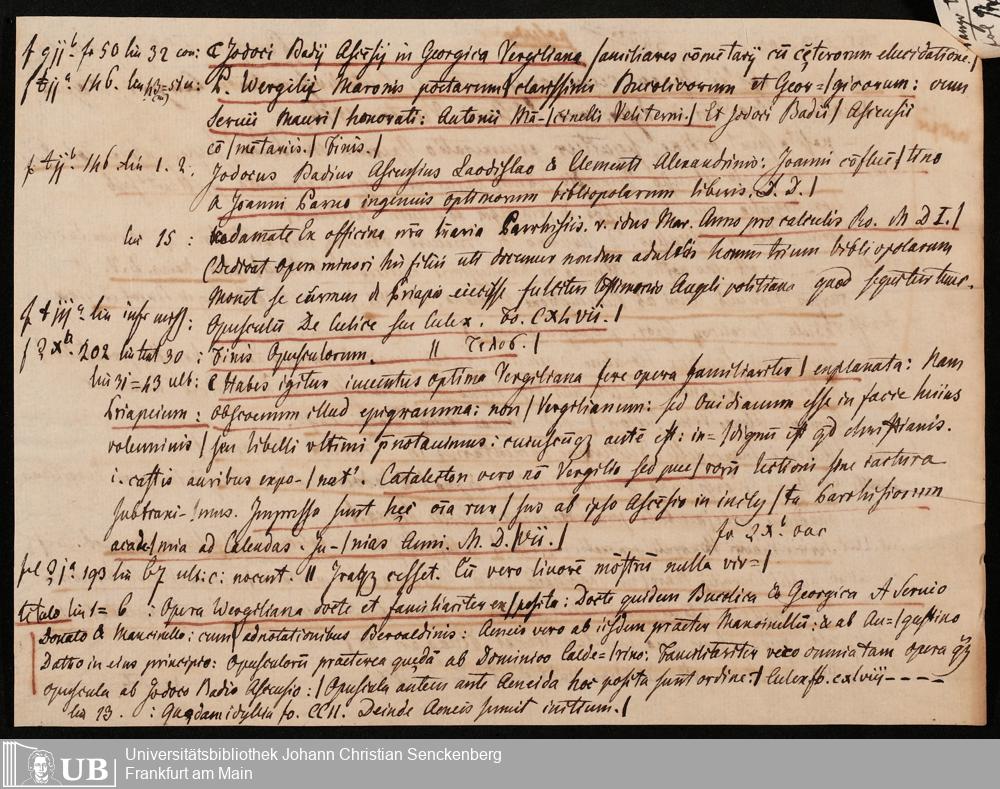 f gjjᵇ fo 50 lin 32 con: C Jodoci Badij Ascēsij in Georgica Vergiliana familiares cōmētarij cū cęterorum elucidatione.
f tjjᵃ 146. lin 43=sin: P. Wergilij Maronis poetarum/clarissimi Bucolicorum et Geor=/gicorum: cum
Seruii Mauri/honorati: Antonii Mā-/cinelli Veliterni./Et Jodoci Badii/Ascensii
cō/metariis./Finis./
f tjjᵇ 146 lin 1. 2. Jodocus Badius Ascensius Laodislao & Clementi Alexandrino: Joanni cōfluē/tino
& Joanni Paruo ingenuis optimorum bibliopolarum liberis. S. D./
lin 15 : Ex officina nr̄a Parrhisiis. v. idus Mar. Anno pro calculis Ro. M D I./
(Dedicat opera minori his filiis uti decimer nondum adultis homini trium bibliopolarum
Monet se carmus Priapo eiecisse fulcitus testimonio Angeli politiana quod sequitur hinc.
f t iijᵃ lin infr : Opusculū De Culice seu Culex. Fo. CXLvii./
f 2 xᵃ. 202 lin 30 : Finis Opusculorum. || Τελοσ./
lin 31=43 ult: C Habes igitur iuuentus optima Vergiliana fere opera familiariter/explanata: Nam
Priapeium: obscoenum illud epigramma: non/Vergilianum: sed Ouidianum esse in facie huius
voluminis/seu libelli vltimi p̄notauimus: cuiuscūqȝ autē est: in=/dignū est qd christianis.
i. castis auribus expo-/nat'. Catalecton vero nō Vergilio sed pue/rorū lectioni sine iactura
subtraxi-/mus. Impressa sunt hęc oīa rur/sus ab ipso Ascēsio in incly/ta Parrhisiorum
acade/mia ad Calendas. Ju-/nias Anni. M. D./vii./ fo 2 xᵇ. vac
fol 2 jᵃ 193 lin 67 ult: c: nocent. || Iratqȝ cesset. Cū vero liuorē mōstrū nulla vir=/
titulo lin 1=6 : Opera Wergiliana docte et familiariter ex/posita: Docte quidem Bucolica & Georgica A Seruio
Donato & Mancinello: cum/adnotationibus Beroaldinis: Aeneis vero ab iisdem praeter Mancinellū: & ab Au=/gustino
Datho in eius principio: Opusculorū praeterea quędā ab Dominico Calde=/rino: Familiariter vero omnia tam opera qȝ
opuscula ab Jodoco Badio Ascensio:/Opuscula autem ante Aeneida hoc posita sunt ordine:/Culex fo. cxlviii----
lin 13. : Quędam idyllia fo. CCII. Deinde Aeneis sumit initium./
UB Universitätsbibliothek Johann Christian Senckenberg
Frankfurt am Main